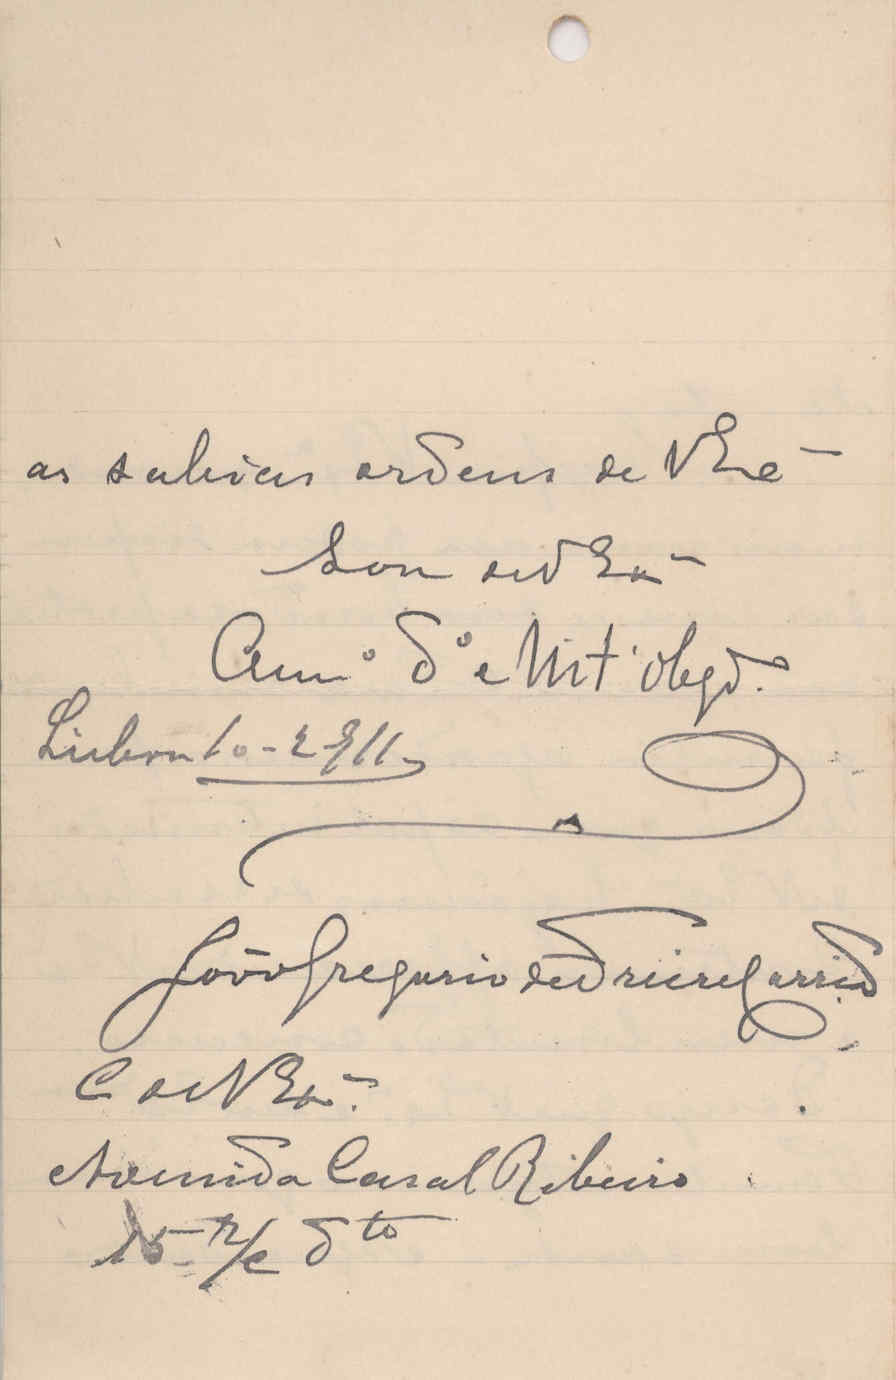 as sabias ordens de V Exª
Sou de V Exª
Amº dº e Mtº obgdº
Lisboa 10-2-911
João Gregorio de Freire Garrido
C de V Exª
Avenida Casal Ribeiro
15-r/c dto